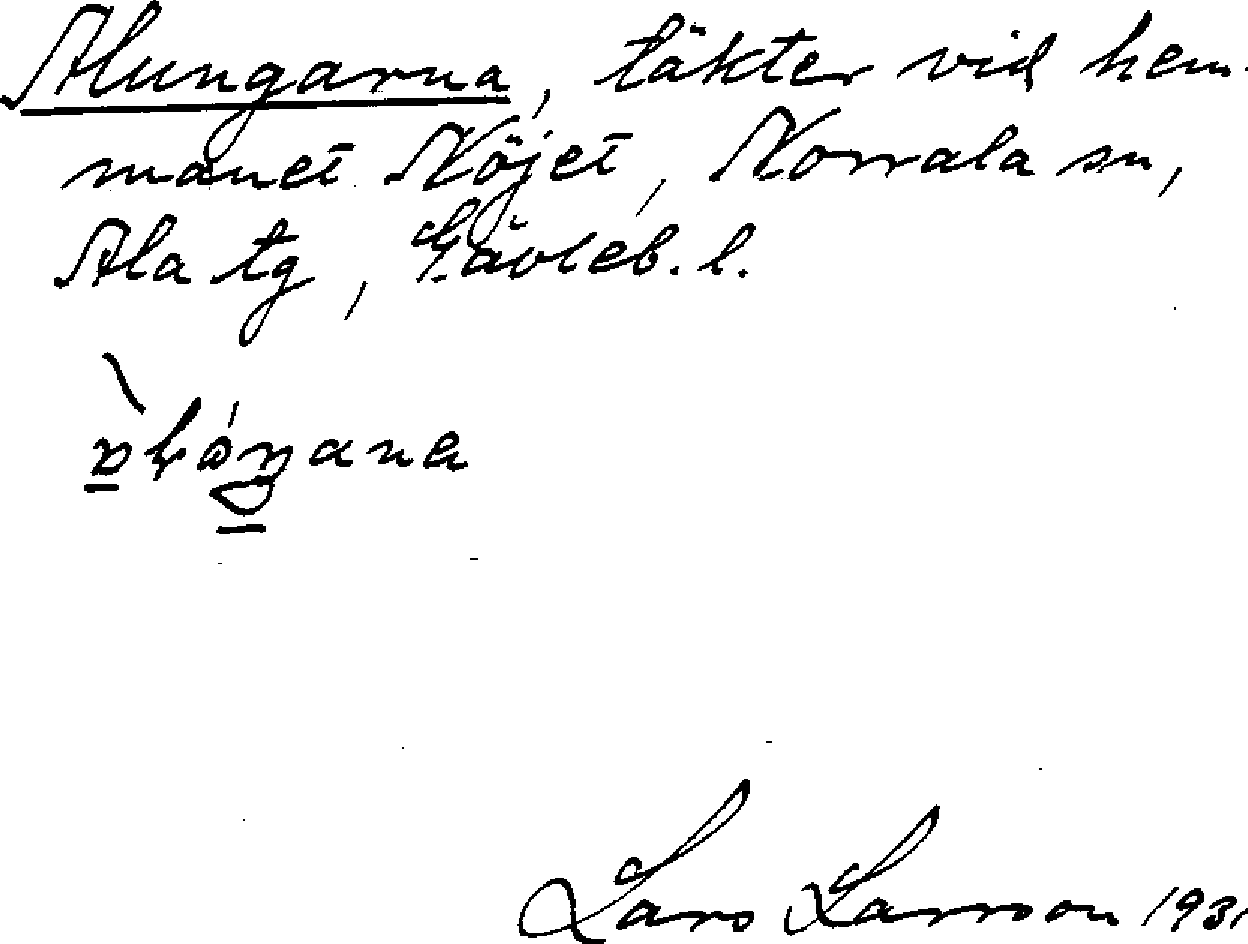 Alungarna, täkter vid hem-
manet Nöjet, Norrala sn,
Ala tg, Gävleb. l.
Lars Larsson 1931